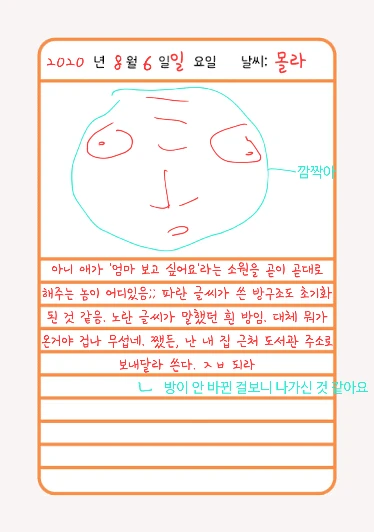 2020 년 8 월 6 일 일 요일 날씨: 몰라
깜짝아
아니 애가 '엄마 보고 싶어요'라는 소원을 곧이 곧대로
해주는 놈이 어디있음;; 파란 글씨가 쓴 방구조도 초기화
된 것 같음. 노란 글씨가 말했던 흰 방임. 대체 뭐가
온거야 겁나 무섭네. 쨌든, 난 내 집 근처 도서관 주소로
보내달라 쓴다. ㅈㅂ 되라
ㄴ 방이 안 바뀐 걸보니 나가신 것 같아요